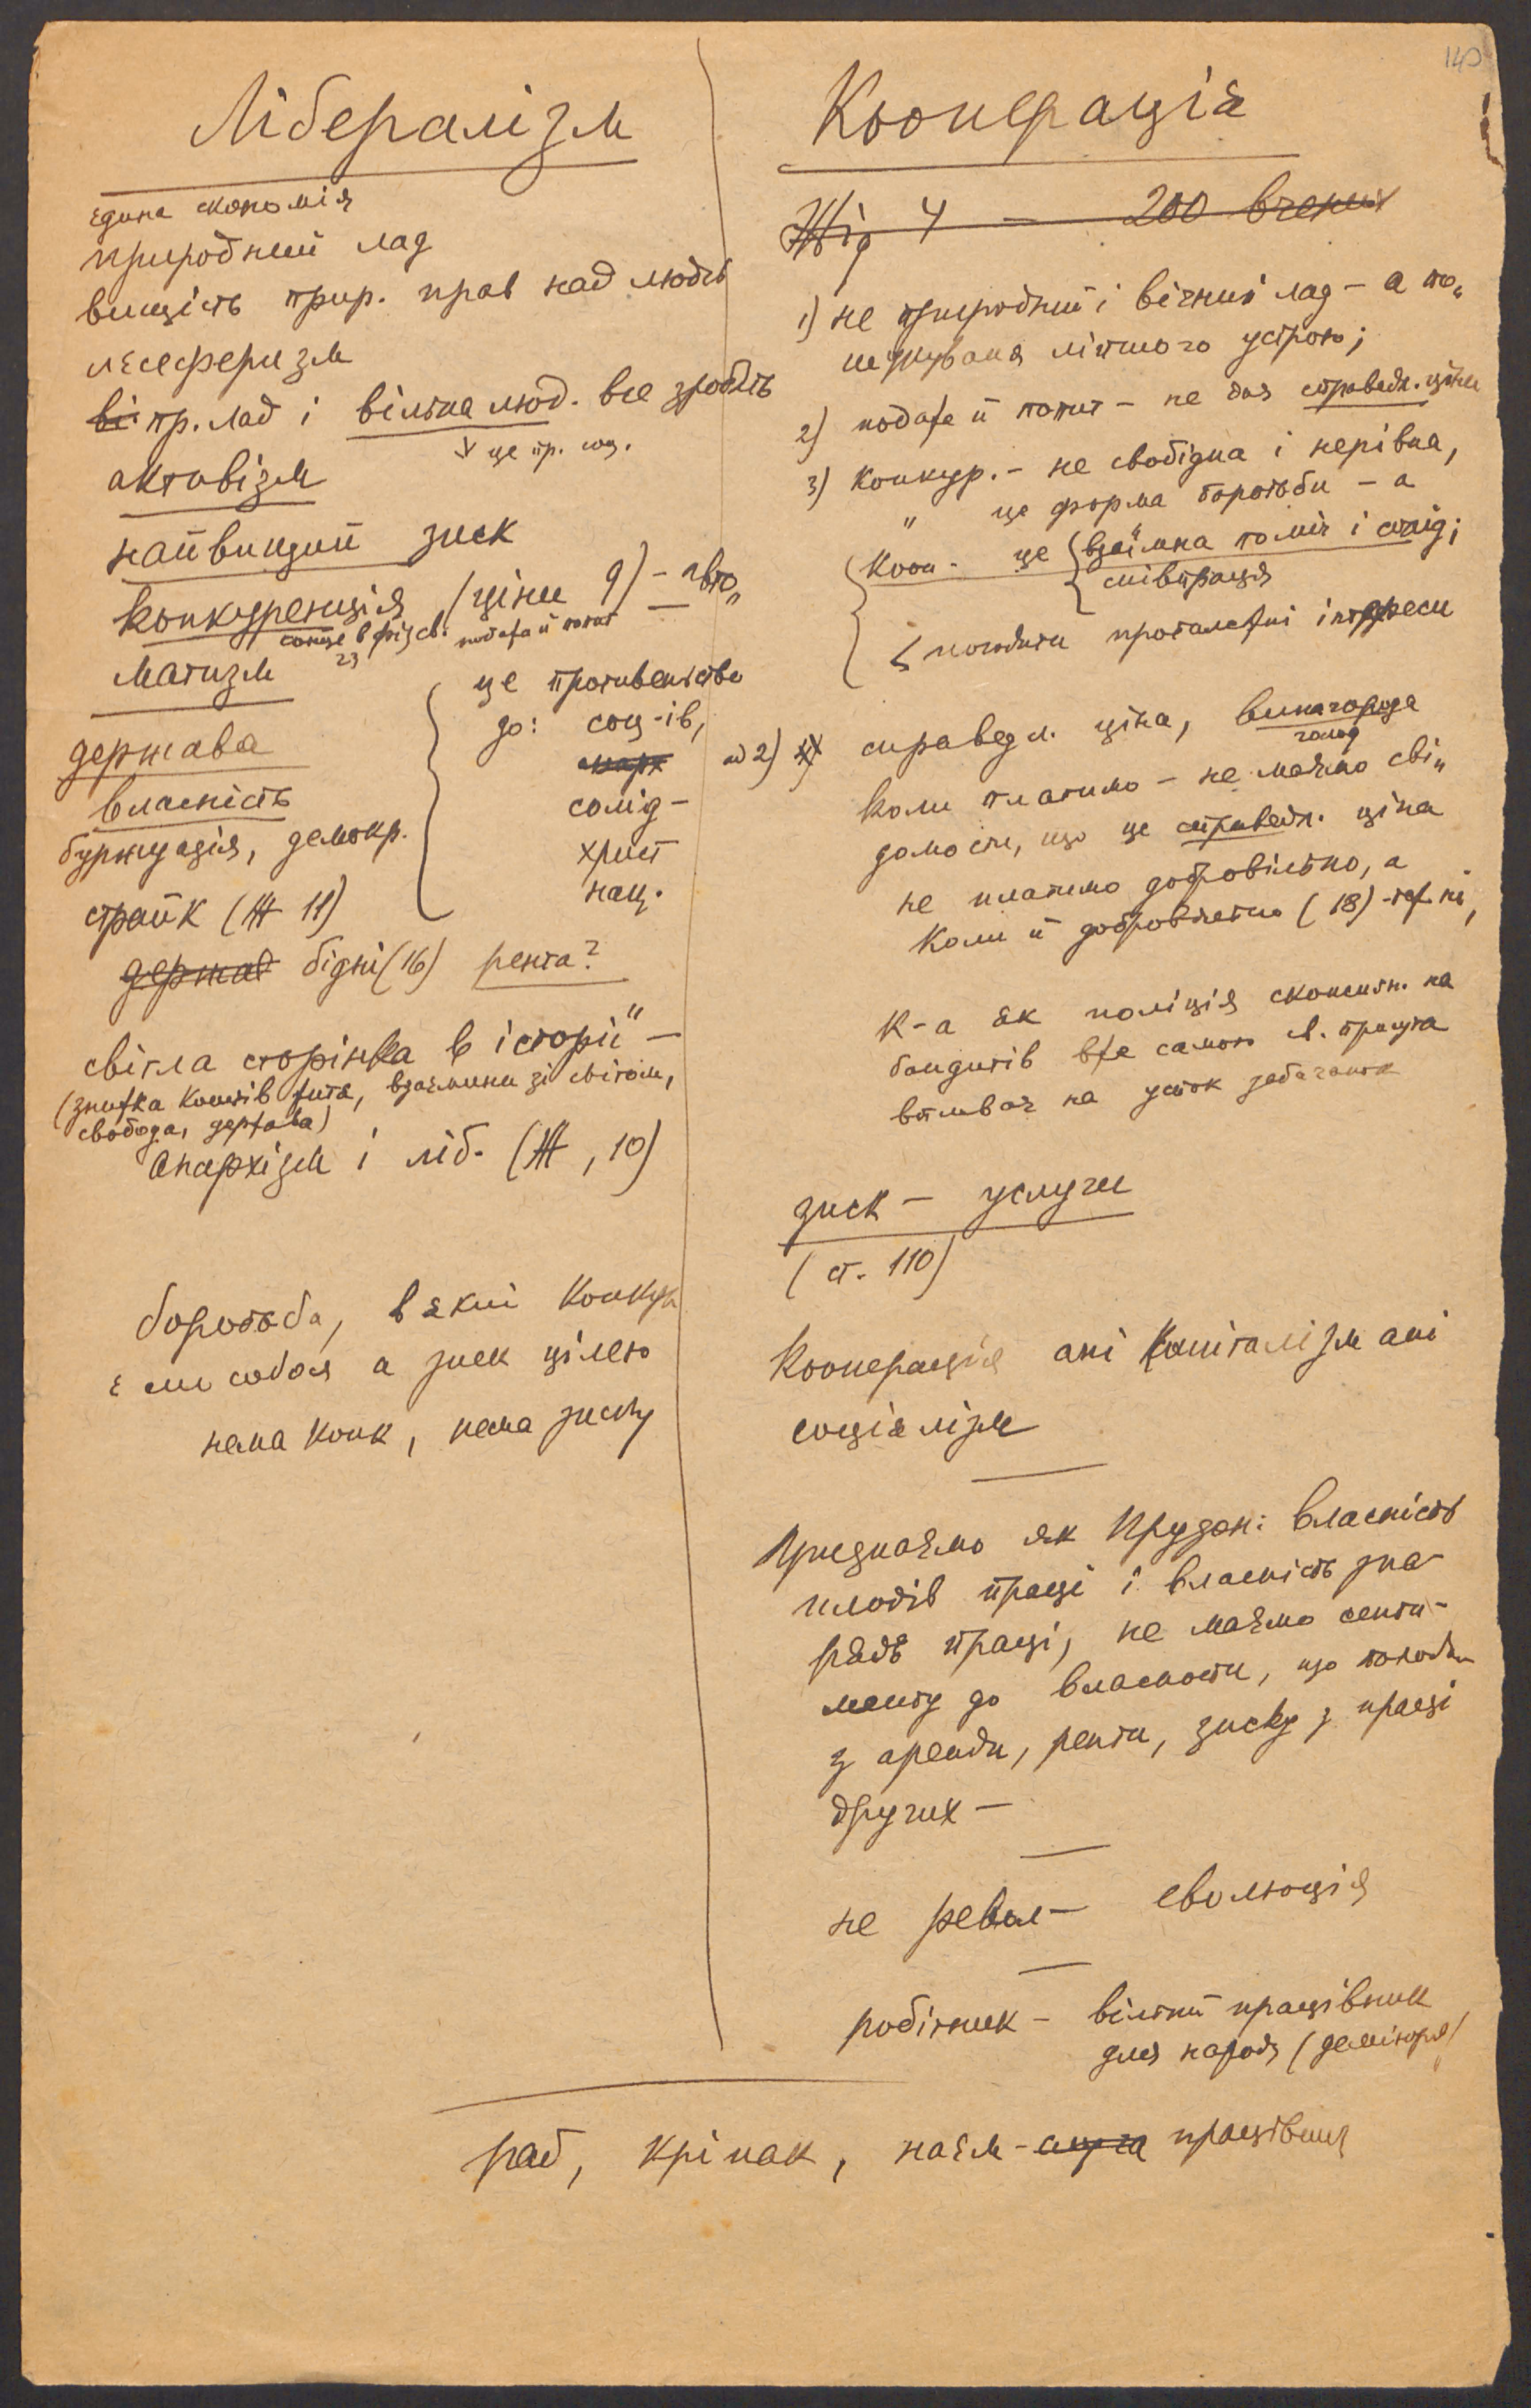 140
Лібералізм
єдина економія
природний лад
вищість прир. прав над людсь
лєсеферизм
ві пр. лад і вільна люд. все зробить
це пр. соц.
активізм
найвищий зиск
конкуренція (ціни 9) – авто„
сонце в фіз. св. подажа й попит
23
матизм
держава
власність
буржуазія, демокр.
страйк (Ж 11)
держав бідні (16) рента?
це противенство
до: соц-ів,
марх
солід-
христ
нац.
світла сторінка в історії" –
(знижка коштів життя, взаємини зі світом,
свобода, держава)
Анархізм і ліб. (Ж, 10)
боротьба, в якій конкур
є ми собоя а зиск цілею
нема конк, нема зиску
Кооперація
Жід 4 – 200 вчених
1) не природний і вічний лад – а по„
шукуваня ліпшого устрою;
2) подажа й попит – не дая справедл. ціни
3) конкур. – не свобідна і нерівна,
" це форма боротьби – а
Кооп. це взаїмна поміч і солід;
співпраця
погодити проталежні інтереси
ad 2) справедл. ціна, винагорода
голод
коли платимо – не маємо сві„
домости, що це справедл. ціна
не платимо добровільно, а
коли й добровільно (18) - теж ні,
К-а як поліція економн. на
бандитів вже самою св. присутна
впливає на
зиск – услуги
(ст. 110)
Кооперація ані капіталізм ані
соціялізм
Признаємо як Прудон: власність
плодів праці і власність зна-
рядь праці, не маємо сенти-
менту до власности, що походи
з аренди, ренти, зиску з праці
других –
не револ – еволюція
робітник – вільний працівник
для народу
раб, кріпак, наєм- працівник